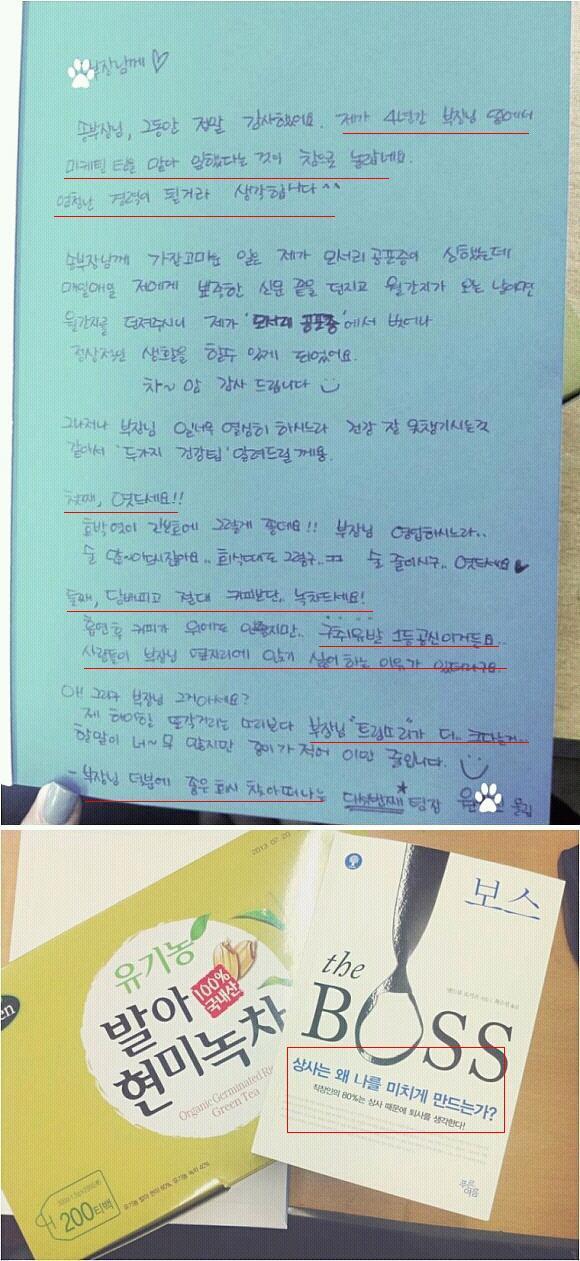 부장님께 ♡
송부장님, 그동안 정말 감사했어요. 제가 4년간 부장님 옆에서
마케팅 팀을 맡아 일했다는 것이 참으로 놀랍네요.
엄청난 경력이 될거라 생각합니다 ^^
송부장님께 가장 고마운 일은 제가 모서리 공포증이 심했는데
매일매일 저에게 뾰족한 신문 끝을 던지고 월간지가 오는 날이면
월간지를 던져주시니 제가 '모서리 공포증'에서 벗어나
정상적인 생활을 할수 있게 되었어요.
차~암 감사 드립니다
그나저나 부장님 일너무 열심히 하시느라 건강 잘 못챙기시는것
같아서 '두가지 건강팁' 알려드릴께용.
첫째, 엿드세요!!
호박엿이 간보호에 그렇게 좋데요!! 부장님 영업하시느라..
술 많~이드시잖아요.. 회식때도 그렇구.. ㅠㅠ 술 줄이시구.. 엿드세요 ♥
둘째, 담배피고 절대 커피보단.. 녹차드세요!
흡연후 커피가 위에도 안좋지만.. 구취유발 1등공신이거든요..
사람들이 부장님 옆자리에 앉기 싫어 하는 이유가 있더라구요.
아! 그리구 부장님 그거아세요?
제 하이힐 또각거리는 소리보다 부장님 "트림소리"가 더.. 크다는거..
할말이 너~무 많지만 종이가 적어 이만 줄입니다.
- 부장님 덕분에 좋은 회사 찾아 떠나는 다섯번째 팀장 윤 올림
2013 07.20
유기농
100% 국내산
발아
현미녹차
Organic Germinated Rice
Green Tea
200티백
보스
the
BOSS
상사는 왜 나를 미치게 만드는가?
직장인의 80%는 상사 때문에 퇴사를 생각한다!
푸른
여름